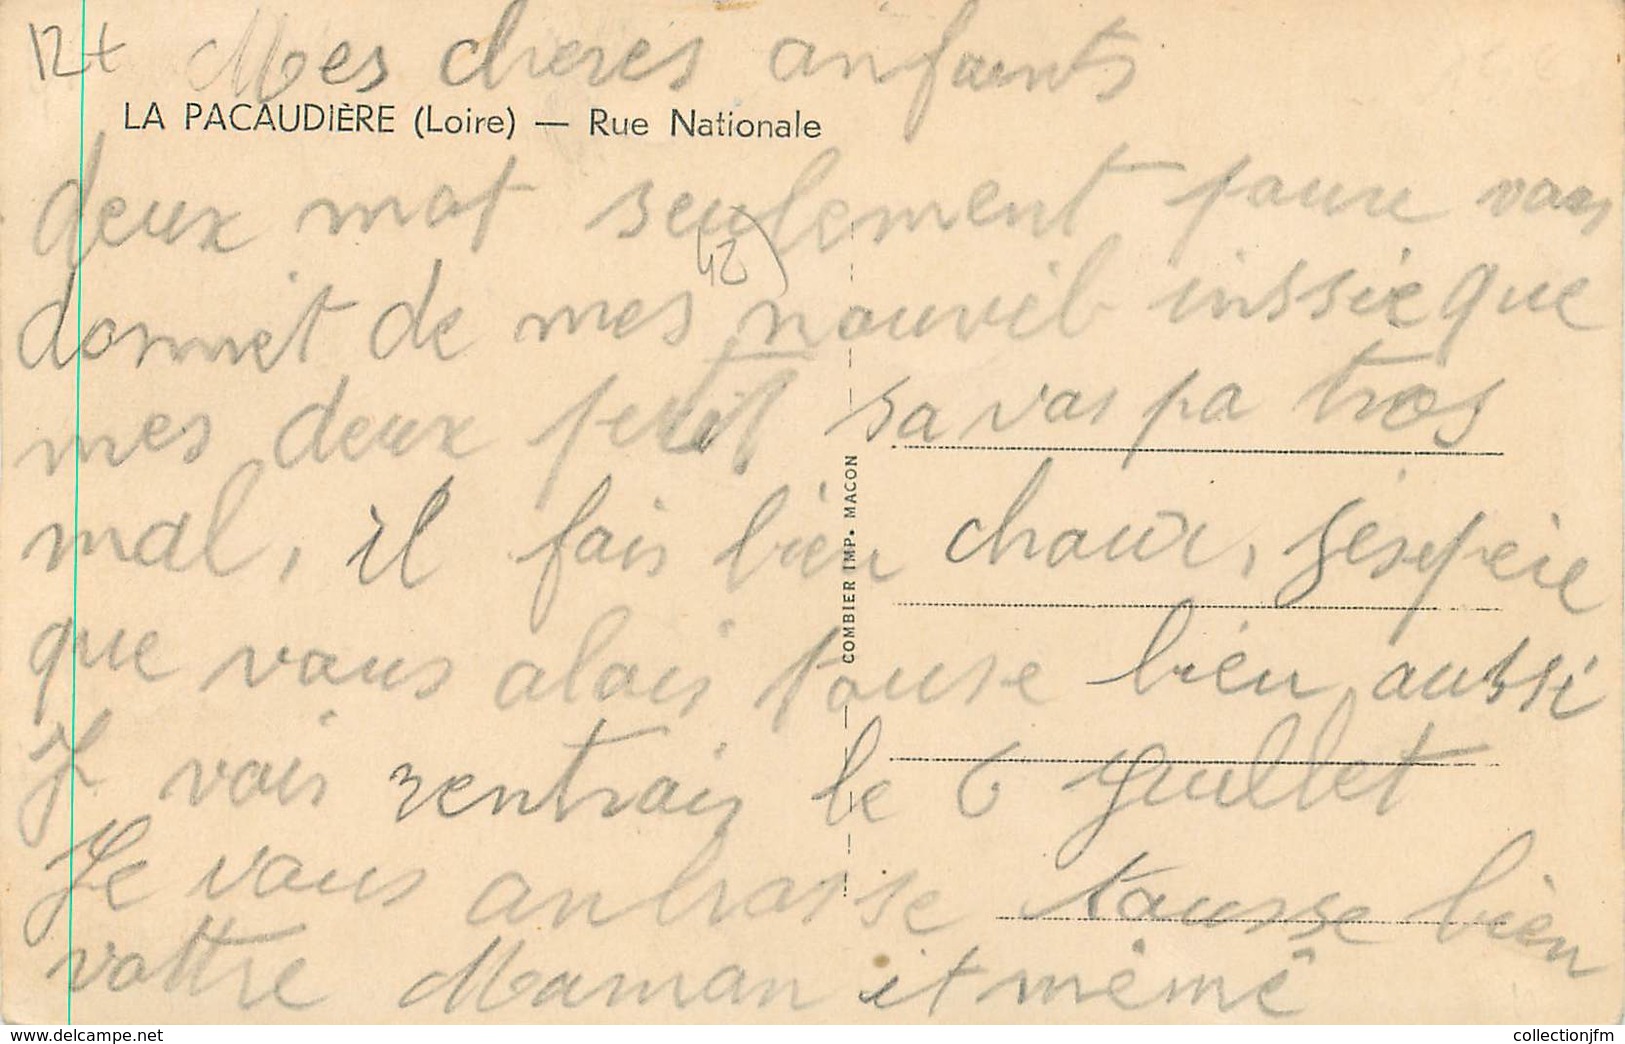 12t Mes cheres anfants
LA PACAUDIÈRE (Loire) — Rue Nationale
deux mot seulement poure vous
42)
donnet de mes nouvèl inssie que
mes deux petit sa vas pa tros
mal, il fais bièn chaux, jéspére
que vous alais touse bièn aussi
J vais rentrais le 6 Juillet
Je vous anbrasse tousse bièn
vottre Maman it mémé
COMBIER IMP. MACON
www.delcampe.net
collectionjfm